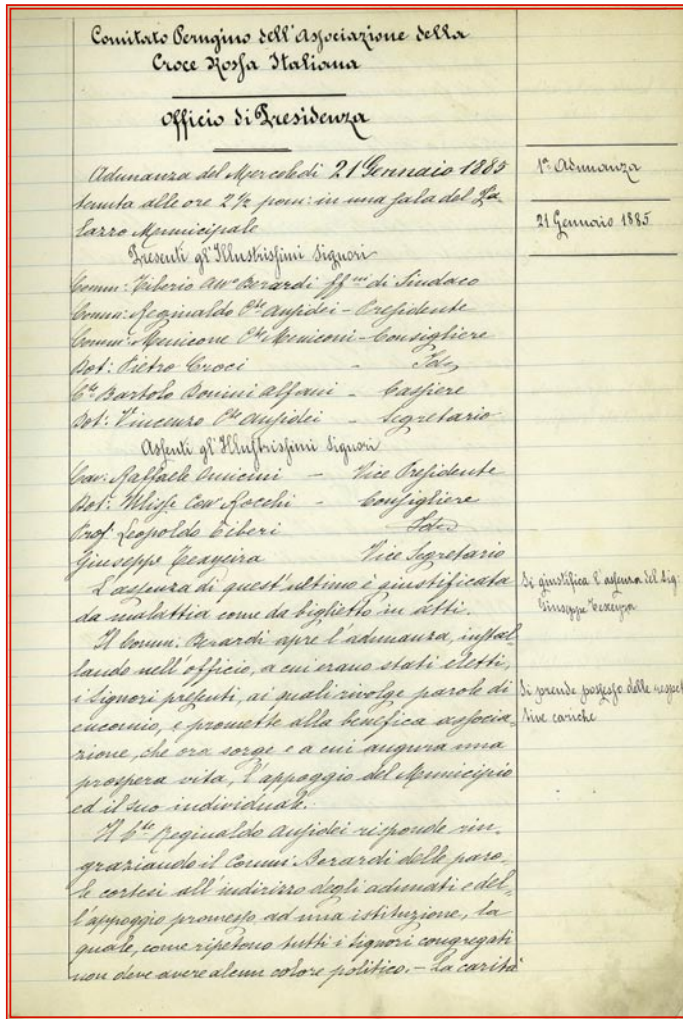 Comitato Perugino dell'Associazione della
Croce Rossa Italiana
Officio di Presidenza
Adunanza del Mercoledì 21 Gennaio 1885
tenuta alle ore 2 1/2 pom: in una sala del Pa-
lazzo Municipale
Presenti gl'Illustrissimi Signori
Comm: Tiberio Avv.o Berardi ff.ni di Sindaco
Comm: Reginaldo C.te Ansidei - Presidente
Comm: Menicone C.te Meniconi - Consigliere
Dot: Pietro Croci - Id.
C.te Bartolo Bonini Alfani - Cassiere
Dot: Vincenzo C.te Ansidei - Segretario
Assenti gl'Illustrissimi Signori
Cav: Raffaele Omicini - Vice Presidente
Dot: Ulisse Cav. Rocchi - Consigliere
Prof. Leopoldo Tiberi Id.
Giuseppe Texeira Vice Segretario
L'assenza di quest'ultimo è giustificata
da malattia come da biglietto in atti.
Il Comm: Berardi apre l'adunanza, instal-
lando nell'officio, a cui erano stati eletti,
i Signori presenti, ai quali rivolge parole di
encomio, e promette alla benefica associa-
zione, che ora sorge e a cui augura una
prospera vita, l'appoggio del Municipio
ed il suo individuale.
Il C.te Reginaldo Ansidei risponde rin-
graziando il Comm: Berardi delle paro-
le cortesi all'indirizzo degli adunati e del-
l'appoggio promesso ad una istituzione, la
quale, come ripetono tutti i signori congregati
non deve avere alcun colore politico. - La carità
1a Adunanza
21 Gennaio 1885
Si giustifica l'assenza del Sig:
Giuseppe Texeira
Si prende possesso delle respet-
tive cariche